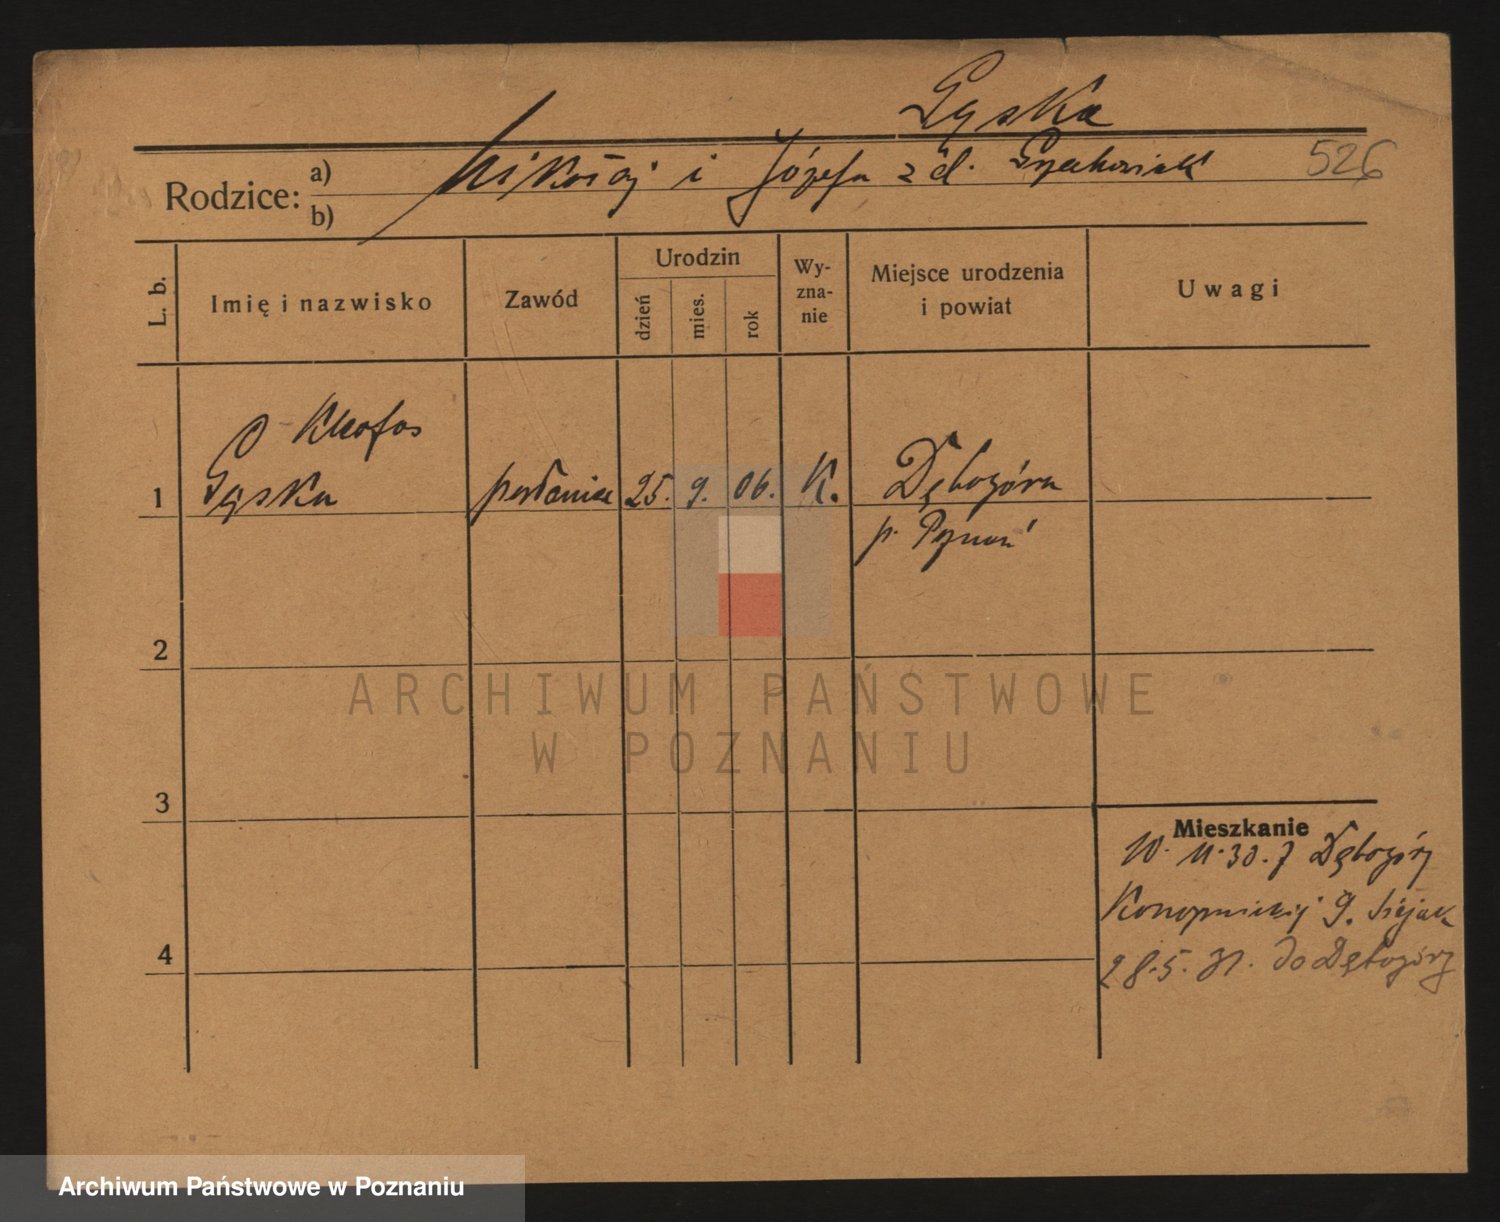 Gąska
526
Rodzice: a) Mikołaj i Józefa z d. Grzechowiak
b)
L. b.
Imię i nazwisko
Zawód
Urodzin
dzień
mies.
rok
Wy-
zna-
nie
Miejsce urodzenia
i powiat
Uwagi
Kleofas
1 Gąska posłaniec 25. 9. 06. K. Dębogóra
p. Poznań
2
3
4
Mieszkanie
10. 11. 30. z Dębogóry
Konopnickiej 9.
28. 5. 31. do Dębogóry
ARCHIWUM PAŃSTWOWE
W POZNANIU
Archiwum Państwowe w Poznaniu